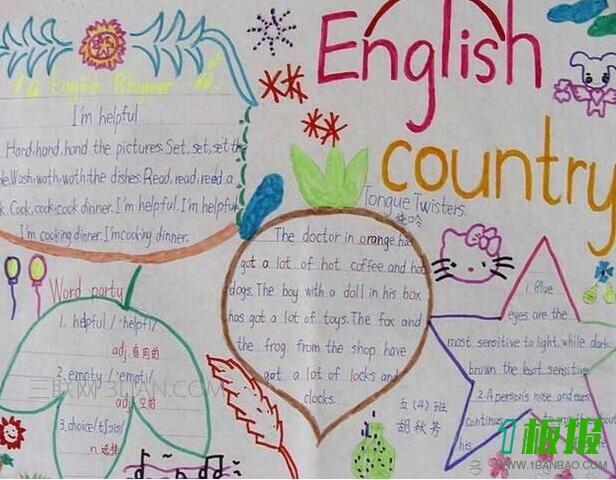 English
country
English Rhymer
I'm helpful
Hand, hand, hand the pictures. Set, set, set the
ble. Wash, wath, wath the dishes. Read, read, read a
k. Cook, cook, cook dinner. I'm helpful. I'm helpful
I'm cooking dinner. I'm cooking dinner.
Word party
1. helpful /ˈhelpfl/
adj. 有用的
2. empty /ˈempti/
adj. 空的
3. choice /tʃɔis/
n. 选择
Tongue Twisters.
绕口令
The doctor in orange has
got a lot of hot coffee and hot
dogs. The boy with a doll in his box
has got a lot of toys. The fox and
the frog from the shop have
got a lot of locks and
clocks.
五(4)班
胡秋芳
1. Blue
eyes are the
most sensitive to light, while dark
brown the least sensitive
2. A person's nose and ears
continue to
his
三联网 3LIAN.COM
1板报
WWW.1BANBAO.COM